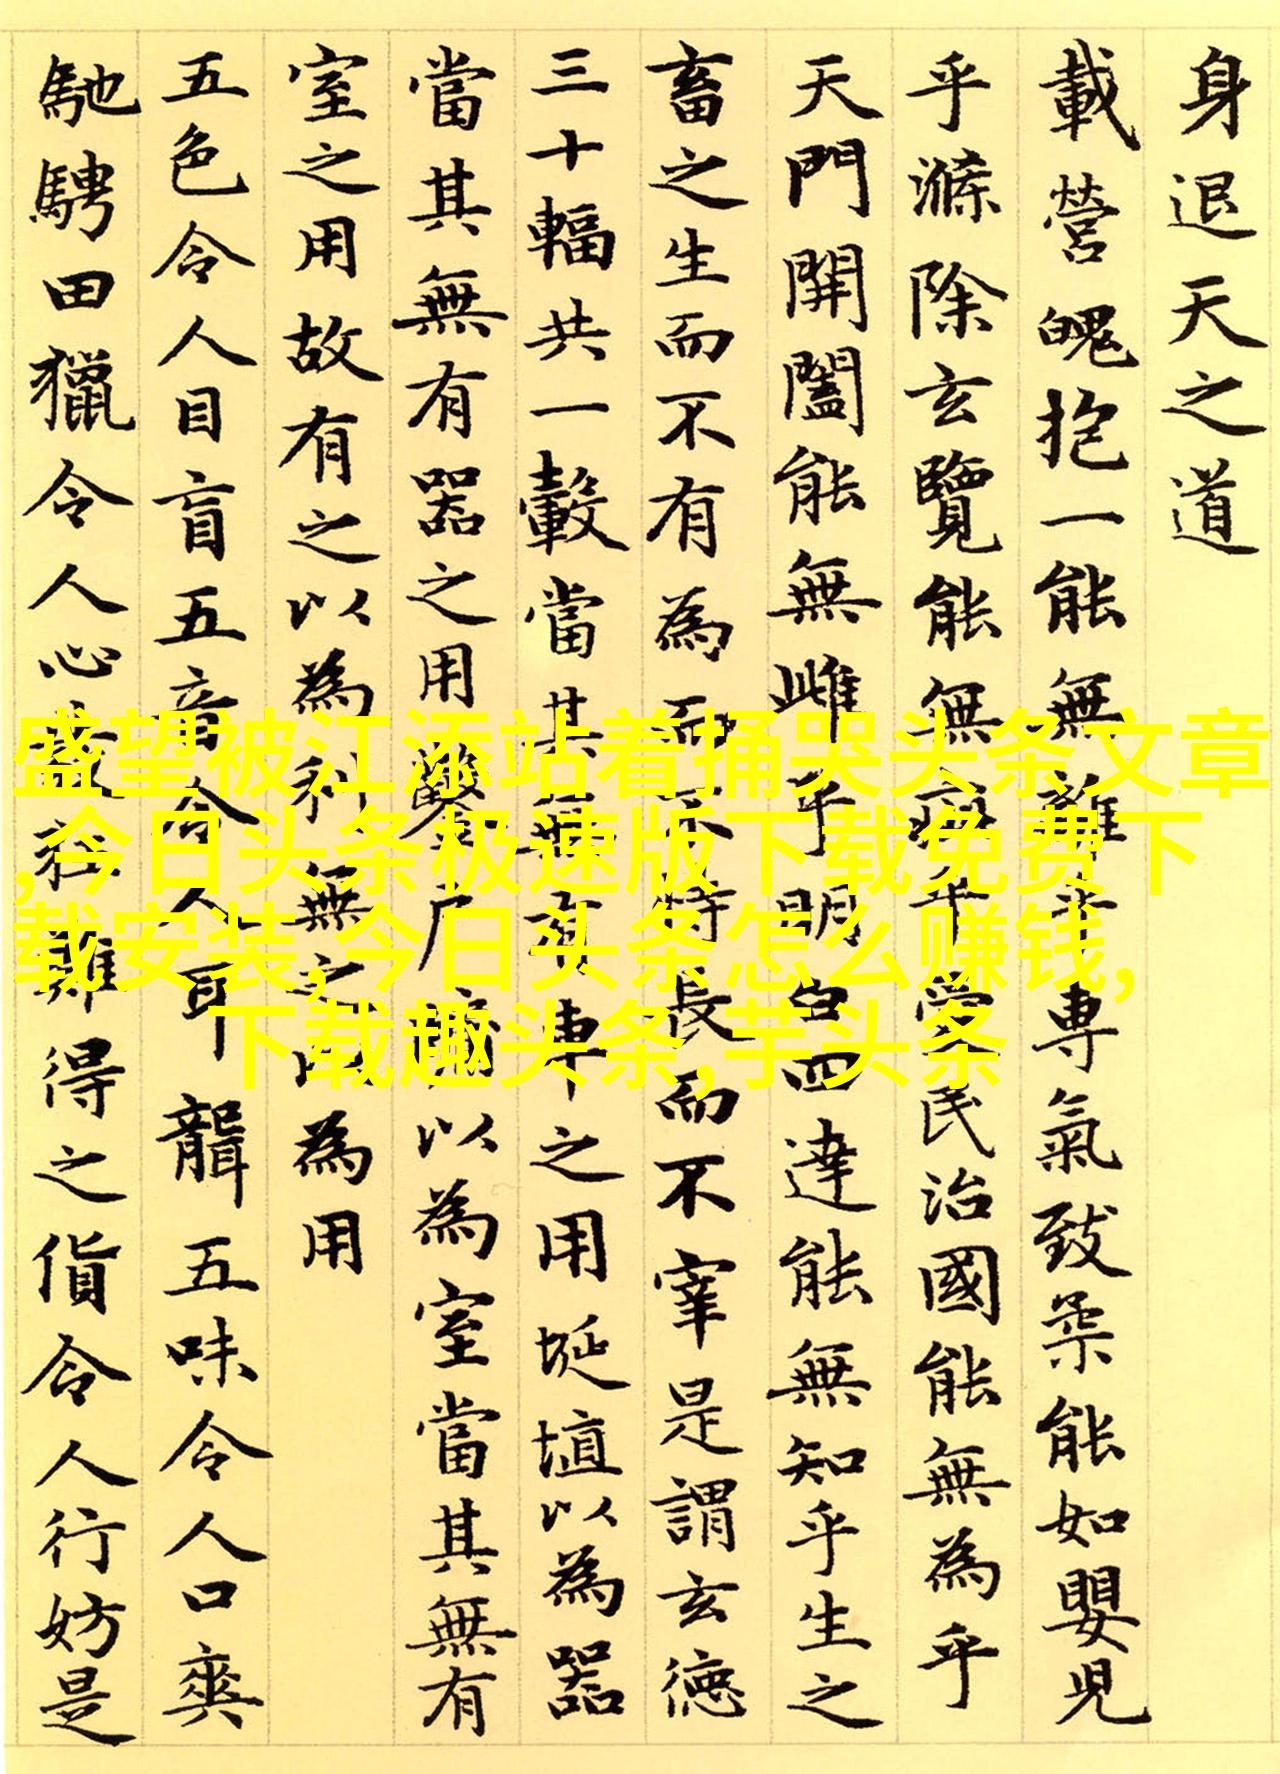 身退天之道
載營魄抱一能無離乎專氣致柔能如嬰兒
乎滌除玄覽能無疵乎愛民治國能無為乎
天門開闔能無雌乎明白四達能無知乎生之
畜之生而不有為而不恃長而不宰是謂玄德
三十輻共一轂當其無有車之用埏埴以為器
當其無有器之用鑿戶牖以為室當其無有
室之用故有之以為利無之以為用
五色令人目盲五音令人耳聾五味令人口爽
馳騁田獵令人心發狂難得之貨令人行妨是
盛望被江添站着捅哭头条文章
,今日头条极速版下载免费下
载安装,今日头条怎么赚钱,
下载趣头条,芋头条